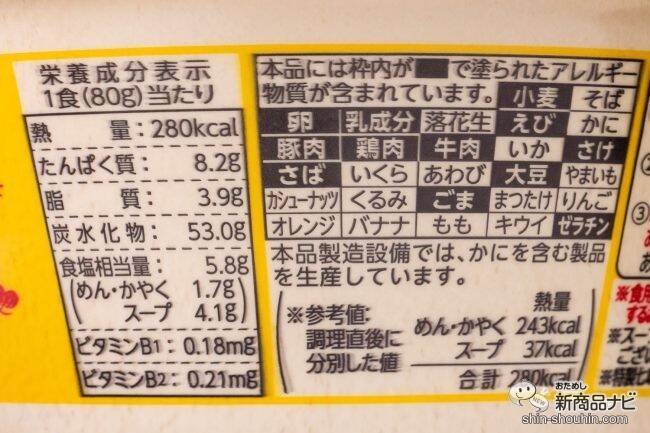 栄養成分表示
1食(80g)当たり
熱量:280kcal
たんぱく質:8.2g
脂質:3.9g
炭水化物:53.0g
食塩相当量:5.8g
(めん・かやく 1.7g
スープ 4.1g)
ビタミンB1:0.18mg
ビタミンB2:0.21mg
本品には枠内が■で塗られたアレルギー
物質が含まれています。 小麦 そば
卵 乳成分 落花生 えび かに
豚肉 鶏肉 牛肉 いか さけ
さば いくら あわび 大豆 やまいも
カシューナッツ くるみ ごま まつたけ りんご
オレンジ バナナ もも キウイ ゼラチン
本品製造設備では、かにを含む製品
を生産しています。
※参考値:
調理直後に
分別した値
熱量
めん・かやく 243kcal
スープ 37kcal
合計 280kcal
③
※食用
※スー
※特製七
おためし
新商品ナビ
NEW
shin-shouhin.com